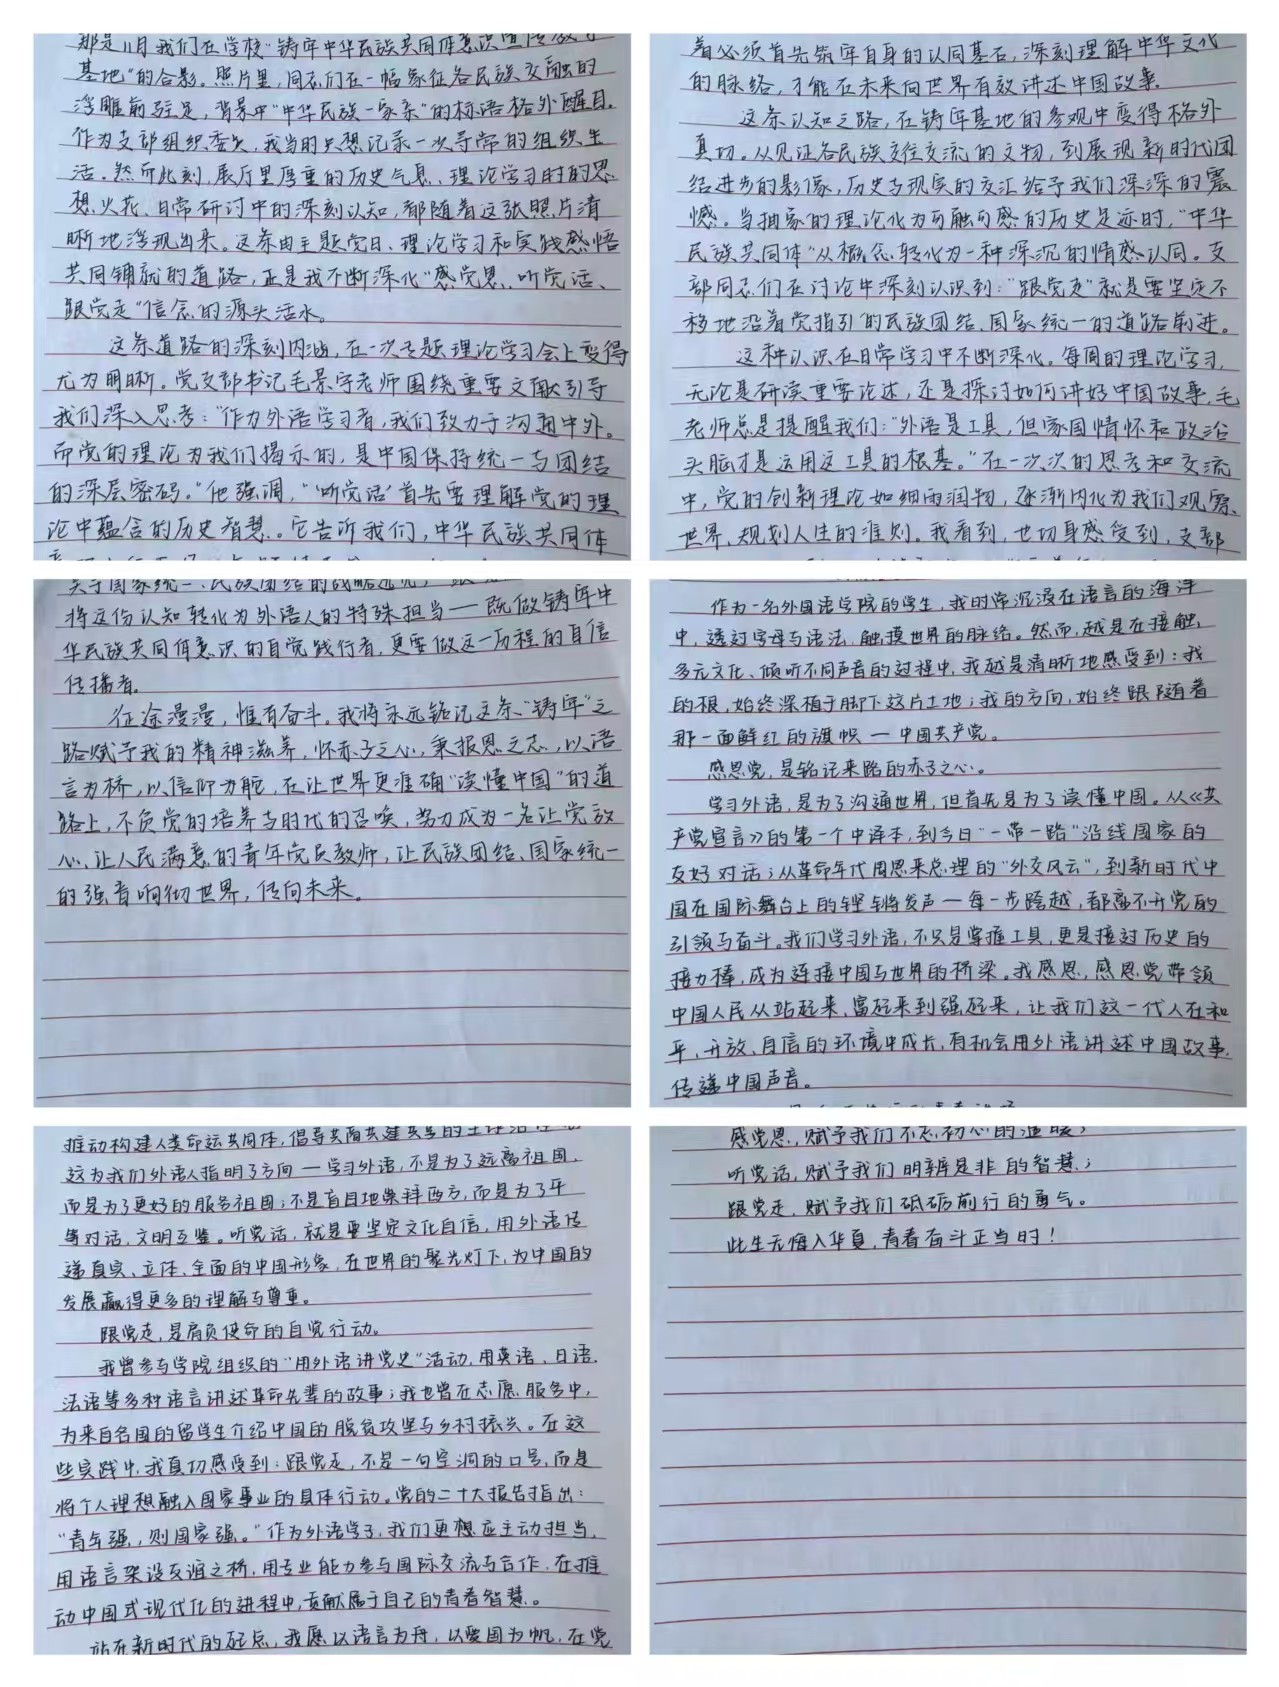 那是11月我们在学校“铸牢中华民族共同体意识宣传教育
基地”的合影。照片里,同志们在一幅象征各民族交融的
浮雕前驻足,背景中“中华民族一家亲”的标语格外醒目。
作为支部组织委员,我当时只想记录一次寻常的组织生
活。然而此刻,展厅里厚重的历史气息、理论学习时的思
想火花、日常研讨中的深刻认知,都随着这张照片清
晰地浮现出来。这条由主题党日、理论学习和实践感悟
共同铺就的道路,正是我不断深化“感党恩、听党话、
跟党走”信念的源头活水。
这条道路的深刻内涵,在一次专题理论学习会上变得
尤为明晰。党支部书记毛景宇老师围绕重要文献引导
我们深入思考:“作为外语学习者,我们致力于沟通中外。
而党的理论为我们揭示的,是中国保持统一与团结
的深层密码。”他强调,“‘听党话’首先要理解党的理
论中蕴含的历史智慧。它告诉我们,中华民族共同体
着必须首先筑牢自身的认同基石,深刻理解中华文化
的脉络,才能在未来向世界有效讲述中国故事。
这条认知之路,在铸牢基地的参观中变得格外
真切。从见证各民族交往交流的文物,到展现新时代团
结进步的影像,历史与现实的交汇给予我们深深的震
憾。当抽象的理论化为可触可感的历史足迹时,“中华
民族共同体”从概念转化为一种深沉的情感认同。支
部同志们在讨论中深刻认识到:“跟党走”就是要坚定不
移地沿着党指引的民族团结、国家统一的道路前进。
这种认识在日常学习中不断深化。每周的理论学习,
无论是研读重要论述,还是探讨如何讲好中国故事,毛
老师总是提醒我们:“外语是工具,但家国情怀和政治
头脑才是运用这工具的根基。”在一次次的思考和交流
中,党的创新理论如细雨润物,逐渐内化为我们观察
世界、规划人生的准则。我看到,也切身感受到,支部
关于国家统一、民族团结的战略远见,
将这份认知转化为外语人的特殊担当——既做铸牢中
华民族共同体意识的自觉践行者,更要做这一历程的自信
传播者。
征途漫漫,惟有奋斗。我将永远铭记这条“铸牢”之
路赋予我的精神滋养,怀赤子之心,秉报恩之志,以语
言为桥,以信仰为舵,在让世界更准确“读懂中国”的道
路上,不负党的培养与时代的召唤,努力成为一名让党放
心、让人民满意的青年党员教师,让民族团结、国家统一
的强音响彻世界,传向未来。
作为一名外国语学院的学生,我时常沉浸在语言的海洋
中,透过字母与语法,触摸世界的脉络。然而,越是在接触
多元文化、倾听不同声音的过程中,我越是清晰地感受到:我
的根,始终深植于脚下这片土地;我的方向,始终跟随着
那一面鲜红的旗帜——中国共产党。
感恩党,是铭记来路的赤子之心。
学习外语,是为了沟通世界,但首先是为了读懂中国。从《共
产党宣言》的第一个中译本,到今日“一带一路”沿线国家的
友好对话;从革命年代周恩来总理的“外交风云”,到新时代中
国在国际舞台上的铿锵发声——每一步跨越,都离不开党的
引领与奋斗。我们学习外语,不只是掌握工具,更是接过历史的
接力棒,成为连接中国与世界的桥梁。我感恩,感恩党带领
中国人民从站起来、富起来到强起来,让我们这一代人在和
平、开放、自信的环境中成长,有机会用外语讲述中国故事,
传递中国声音。
推动构建人类命运共同体,倡导共商共建共享的全球治理观
这为我们外语人指明了方向——学习外语,不是为了远离祖国,
而是为了更好的服务祖国;不是盲目地崇拜西方,而是为了平
等对话,文明互鉴。听党话,就是要坚定文化自信,用外语传
递真实、立体、全面的中国形象,在世界的聚光灯下,为中国的
发展赢得更多的理解与尊重。
跟党走,是肩负使命的自觉行动。
我曾参与学院组织的“用外语讲党史”活动,用英语、日语、
法语等多种语言讲述革命先辈的故事;我也曾在志愿服务中,
为来自各国的留学生介绍中国的脱贫攻坚与乡村振兴。在这
些实践中,我真切感受到:跟党走,不是一句空洞的口号,而是
将个人理想融入国家事业的具体行动。党的二十大报告指出:
“青年强,则国家强。”作为外语学子,我们更想应主动担当,
用语言架设友谊之桥,用专业能力参与国际交流与合作,在推
动中国式现代化的进程中,贡献属于自己的青春智慧。
站在新时代的起点,我愿以语言为舟,以爱国为帆,在党
感党恩,赋予我们不忘初心的温暖;
听党话,赋予我们明辨是非的智慧;
跟党走,赋予我们砥砺前行的勇气。
此生无悔入华夏,青春奋斗正当时!